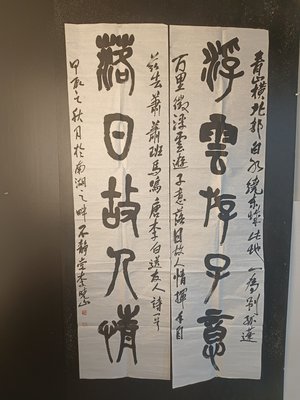 青山橫北郭白水繞東城此地一為別孤蓬
浮雲斿子意
万里徵浮雲遊子意落日故人情揮手自
茲去蕭蕭班馬鳴唐李白送友人詩一首
落日故人情
甲辰之秋月於南湖之畔不静堂李